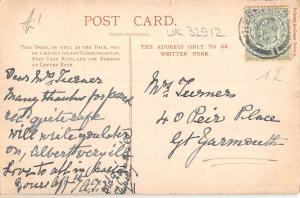 £1
POST CARD.
UK 32912
THIS SPACE, AS WELL AS THE BACK, MAY
BE USED FOR INLAND COMMUNICATION.
POST CARD RATE, AND FOR FOREIGN
AT LETTER RATE.
THE ADDRESS ONLY TO BE
WRITTEN HERE.
12
Dear Mrs Turner
Many thanks for
quite safe
will write you later
on, Albert very ill
Love to all in
Yours
Mrs Turners
40 Peir Place
Gt Garmouth